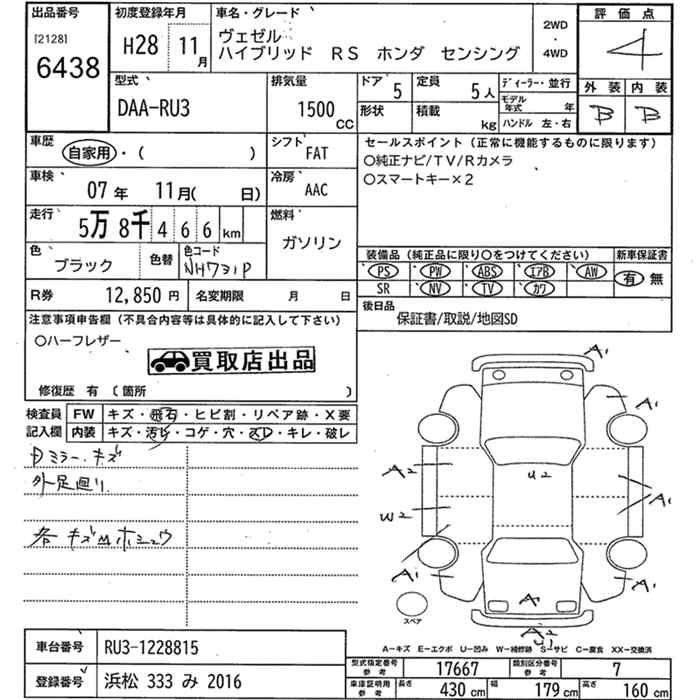 出品番号
[2128]
6438
初度登録年月
H28 11月
車名・グレード
ヴェゼル
ハイブリッド RS ホンダ センシング
2WD
・
4WD
評価点
4
外装 内装
B B
型式
DAA-RU3
排気量
1500
CC
ドア 5
定員 5人
ディーラー・並行
モデル年式 年
形状
積載 kg
ハンドル 左・右
車歴
自家用・( )
シフト
FAT
車検
07年 11月( 日)
冷房
AAC
走行
5万 8千 4 6 6 km
燃料
ガソリン
色
ブラック
色替
色コード
NH731P
R券 12,850円
名変期限 月 日
セールスポイント(正常に機能するものに限ります)
○純正ナビ/TV/Rカメラ
○スマートキー×2
装備品(純正品に限り○をつけてください)
新車保証書
PS PW ABS エアB AW
SR NV TV カワ
有 無
後日品
保証書/取説/地図SD
注意事項申告欄(不具合内容等は具体的に記入して下さい)
○ハーフレザー
買取店出品
修復歴 有 〔箇所 〕
検査員
記入欄
FW キズ・飛石・ヒビ割・リペア跡・X要
内装 キズ・汚れ・コゲ・穴・スレ・キレ・破レ
ミラー・キズ
外足廻り
各キズ ホシュウ
A1
A1
A2
U2
A1
W2
A1
A1
A1
A1
U2
スペア
A-キズ E-エクボ U-凹み W-補修跡 S-サビ C-腐食 XX-交換済
車台番号 RU3-1228815
登録番号 浜松 333 み 2016
型式指定番号
参考
17667
類別区分番号
参考
7
車庫証明用
参考
長さ 430 cm
幅 179 cm
高さ 160 cm